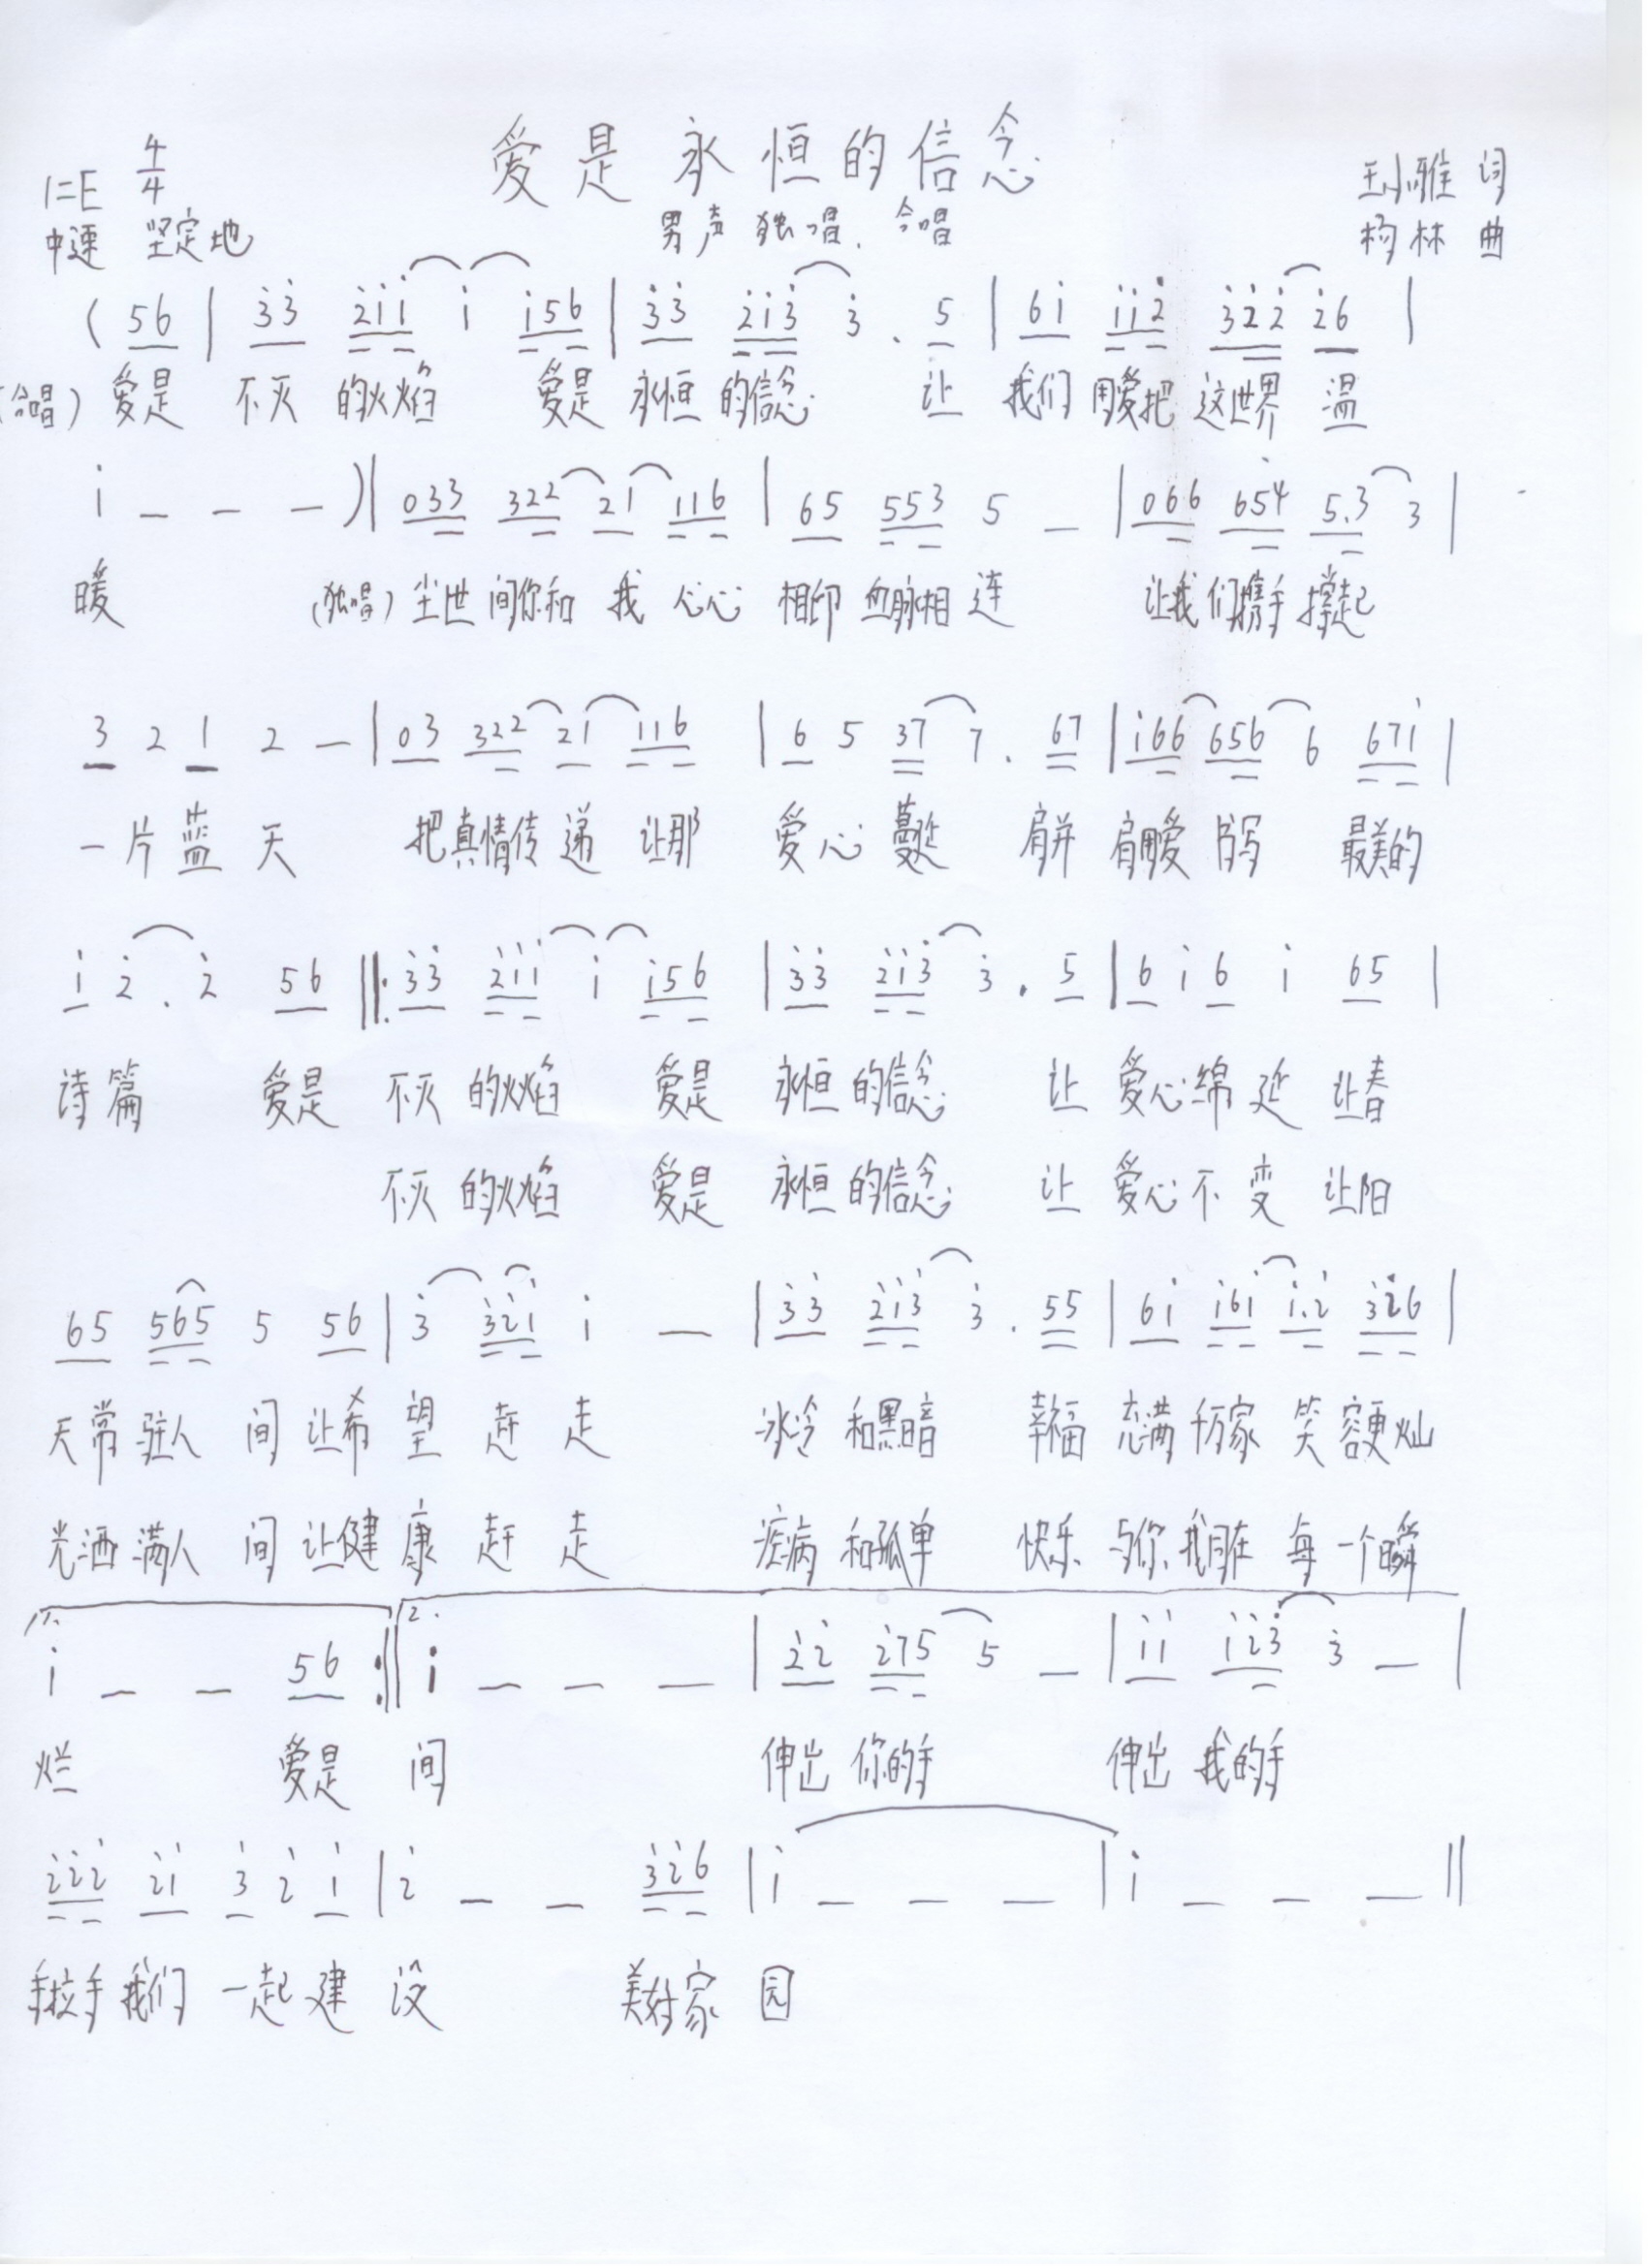 爱是永恒的信念
1=E 4/4
男声独唱、合唱
王小雅 词
中速 坚定地
林 曲
( 56 | 3̇3̇ 2̇1̇1̇ 1̇ 1̇56 | 3̇3̇ 2̇1̇3̇ 3̇ . 5 | 61̇ 1̇1̇2̇ 3̇2̇2̇ 2̇6 |
(合唱) 爱是 不灭 的火焰 爱是 永恒 的信念 让 我们 用爱把 这世界 温
1̇ — — — )| 033 322 21 116 | 65 553 5 — | 066 654 5.3 3 |
暖 (独唱) 尘世 间你和 我 心心 相印 血脉相 连 让我们携手 撑起
3 2 1 2 — | 03 322 21 116 | 6 5 37 7 . 67 | 1̇66 656 6 671̇ |
一片 蓝 天 把真情传 递 让那 爱 心 蔓延 肩并 肩用爱 书写 最美的
1̇ 2̇ . 2̇ 56 ‖: 3̇3̇ 2̇1̇1̇ 1̇ 1̇56 | 3̇3̇ 2̇1̇3̇ 3̇ . 5 | 6 1̇ 6 1̇ 65 |
诗篇 爱是 不灭 的火焰 爱是 永恒 的信念 让 爱心绵 延 让春
不灭 的火焰 爱是 永恒 的信念 让 爱心 不 变 让阳
65 565 5 56 | 3̇ 3̇2̇1̇ 1̇ — | 3̇3̇ 2̇1̇3̇ 3̇ . 55 | 61̇ 1̇61̇ 1̇.2̇ 3̇2̇6 |
天常 驻人 间 让希 望 赶 走 冰冷 和黑暗 幸福 充满 千万家 笑 容更灿
光洒 满人 间 让健 康 赶 走 疾病 和孤单 快乐 与你我同在 每 一个瞬
1. 1̇ — — 56 :‖ 2. 1̇ — — — | 2̇2̇ 2̇75 5 — | 1̇1̇ 1̇2̇3̇ 3̇ — |
烂 爱是 间 伸出 你的手 伸出 我的手
2̇2̇2̇ 2̇1̇ 3̇ 2̇ 1̇ | 2̇ — — 3̇2̇6 | 1̇ — — — | 1̇ — — — ‖
手拉手 我们 一起 建 设 美好家 园